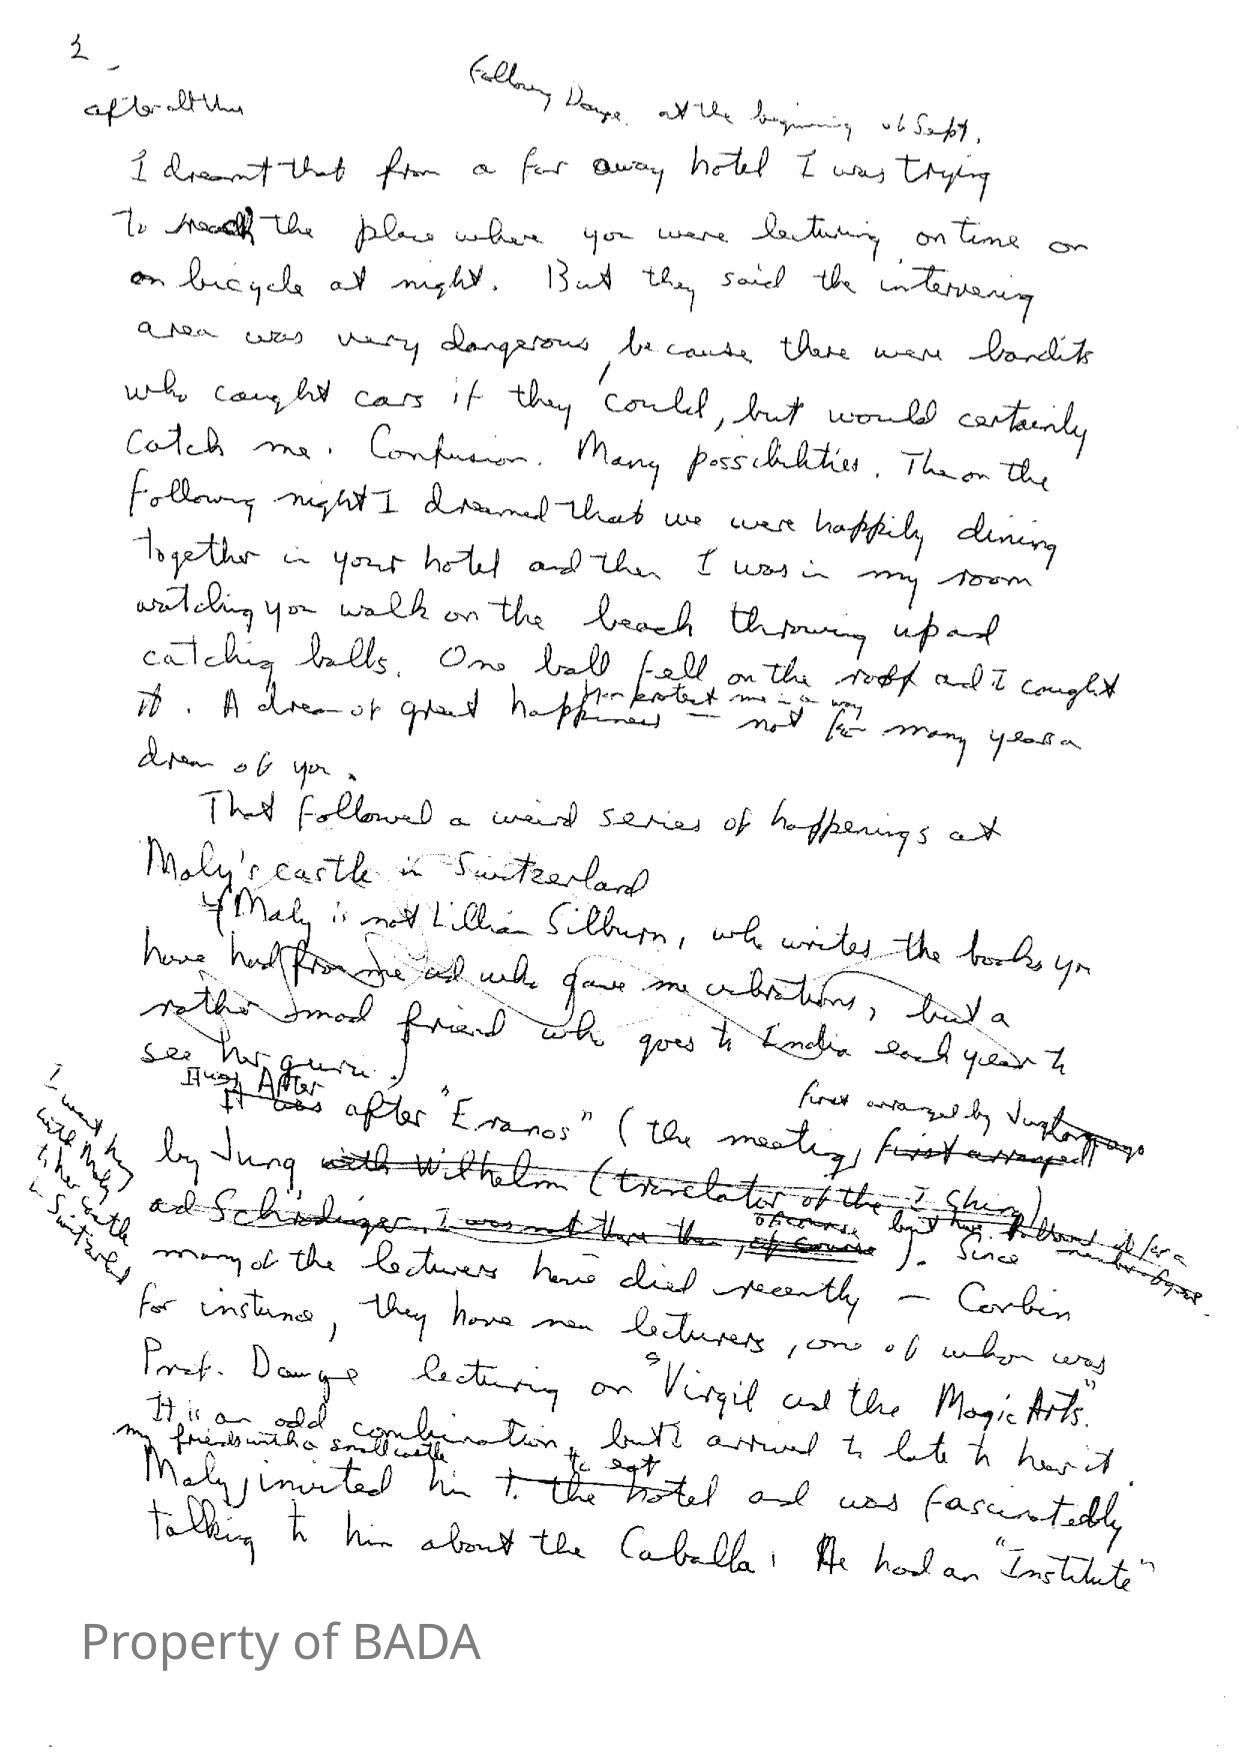 2
after all this
Following Dauge. at the beginning of Sept.
I dreamt that from a far away hotel I was trying
to reach the place where you were lecturing on time on
on bicycle at night. But they said the intervening
area was very dangerous, because there were bandits
who caught cars if they could, but would certainly
catch me. Confusion. Many possibilities. The on the
following night I dreamed that we were happily dining
together in your hotel and then I was in my room
watching you walk on the beach throwing up and
catching balls. One ball fell on the roof and I caught
protect me in a way
it. A dream of great happiness — not for many years a
dream of you.
That followed a weird series of happenings at
Maly's castle in Switzerland
(Maly is not Lillian Silburn, who writes the books you
have had from me and who gave me vibrations, but a
rather mad friend who goes to India each year to
see her guru.)
After
first arranged by Jung long ago
It was after "Eranos" (the meeting, first arranged
by Jung with Wilhelm (translator of the I Ching)
of course but have followed it for a
number of years
and Schrödinger, I was not there then, of course). Since
I went by
with Maly
to her castle
in Switzerland
many of the lecturers have died recently — Corbin
for instance, they have new lecturers, one of whom was
Prof. Dauge lecturing on "Virgil and the Magic Arts."
It is an odd combination, but I arrived to late to hear it.
my friend with a small castle
to eat
Maly, invited him to the hotel and was fascinatedly
talking to him about the Caballa. He had an "Institute"
Property of BADA